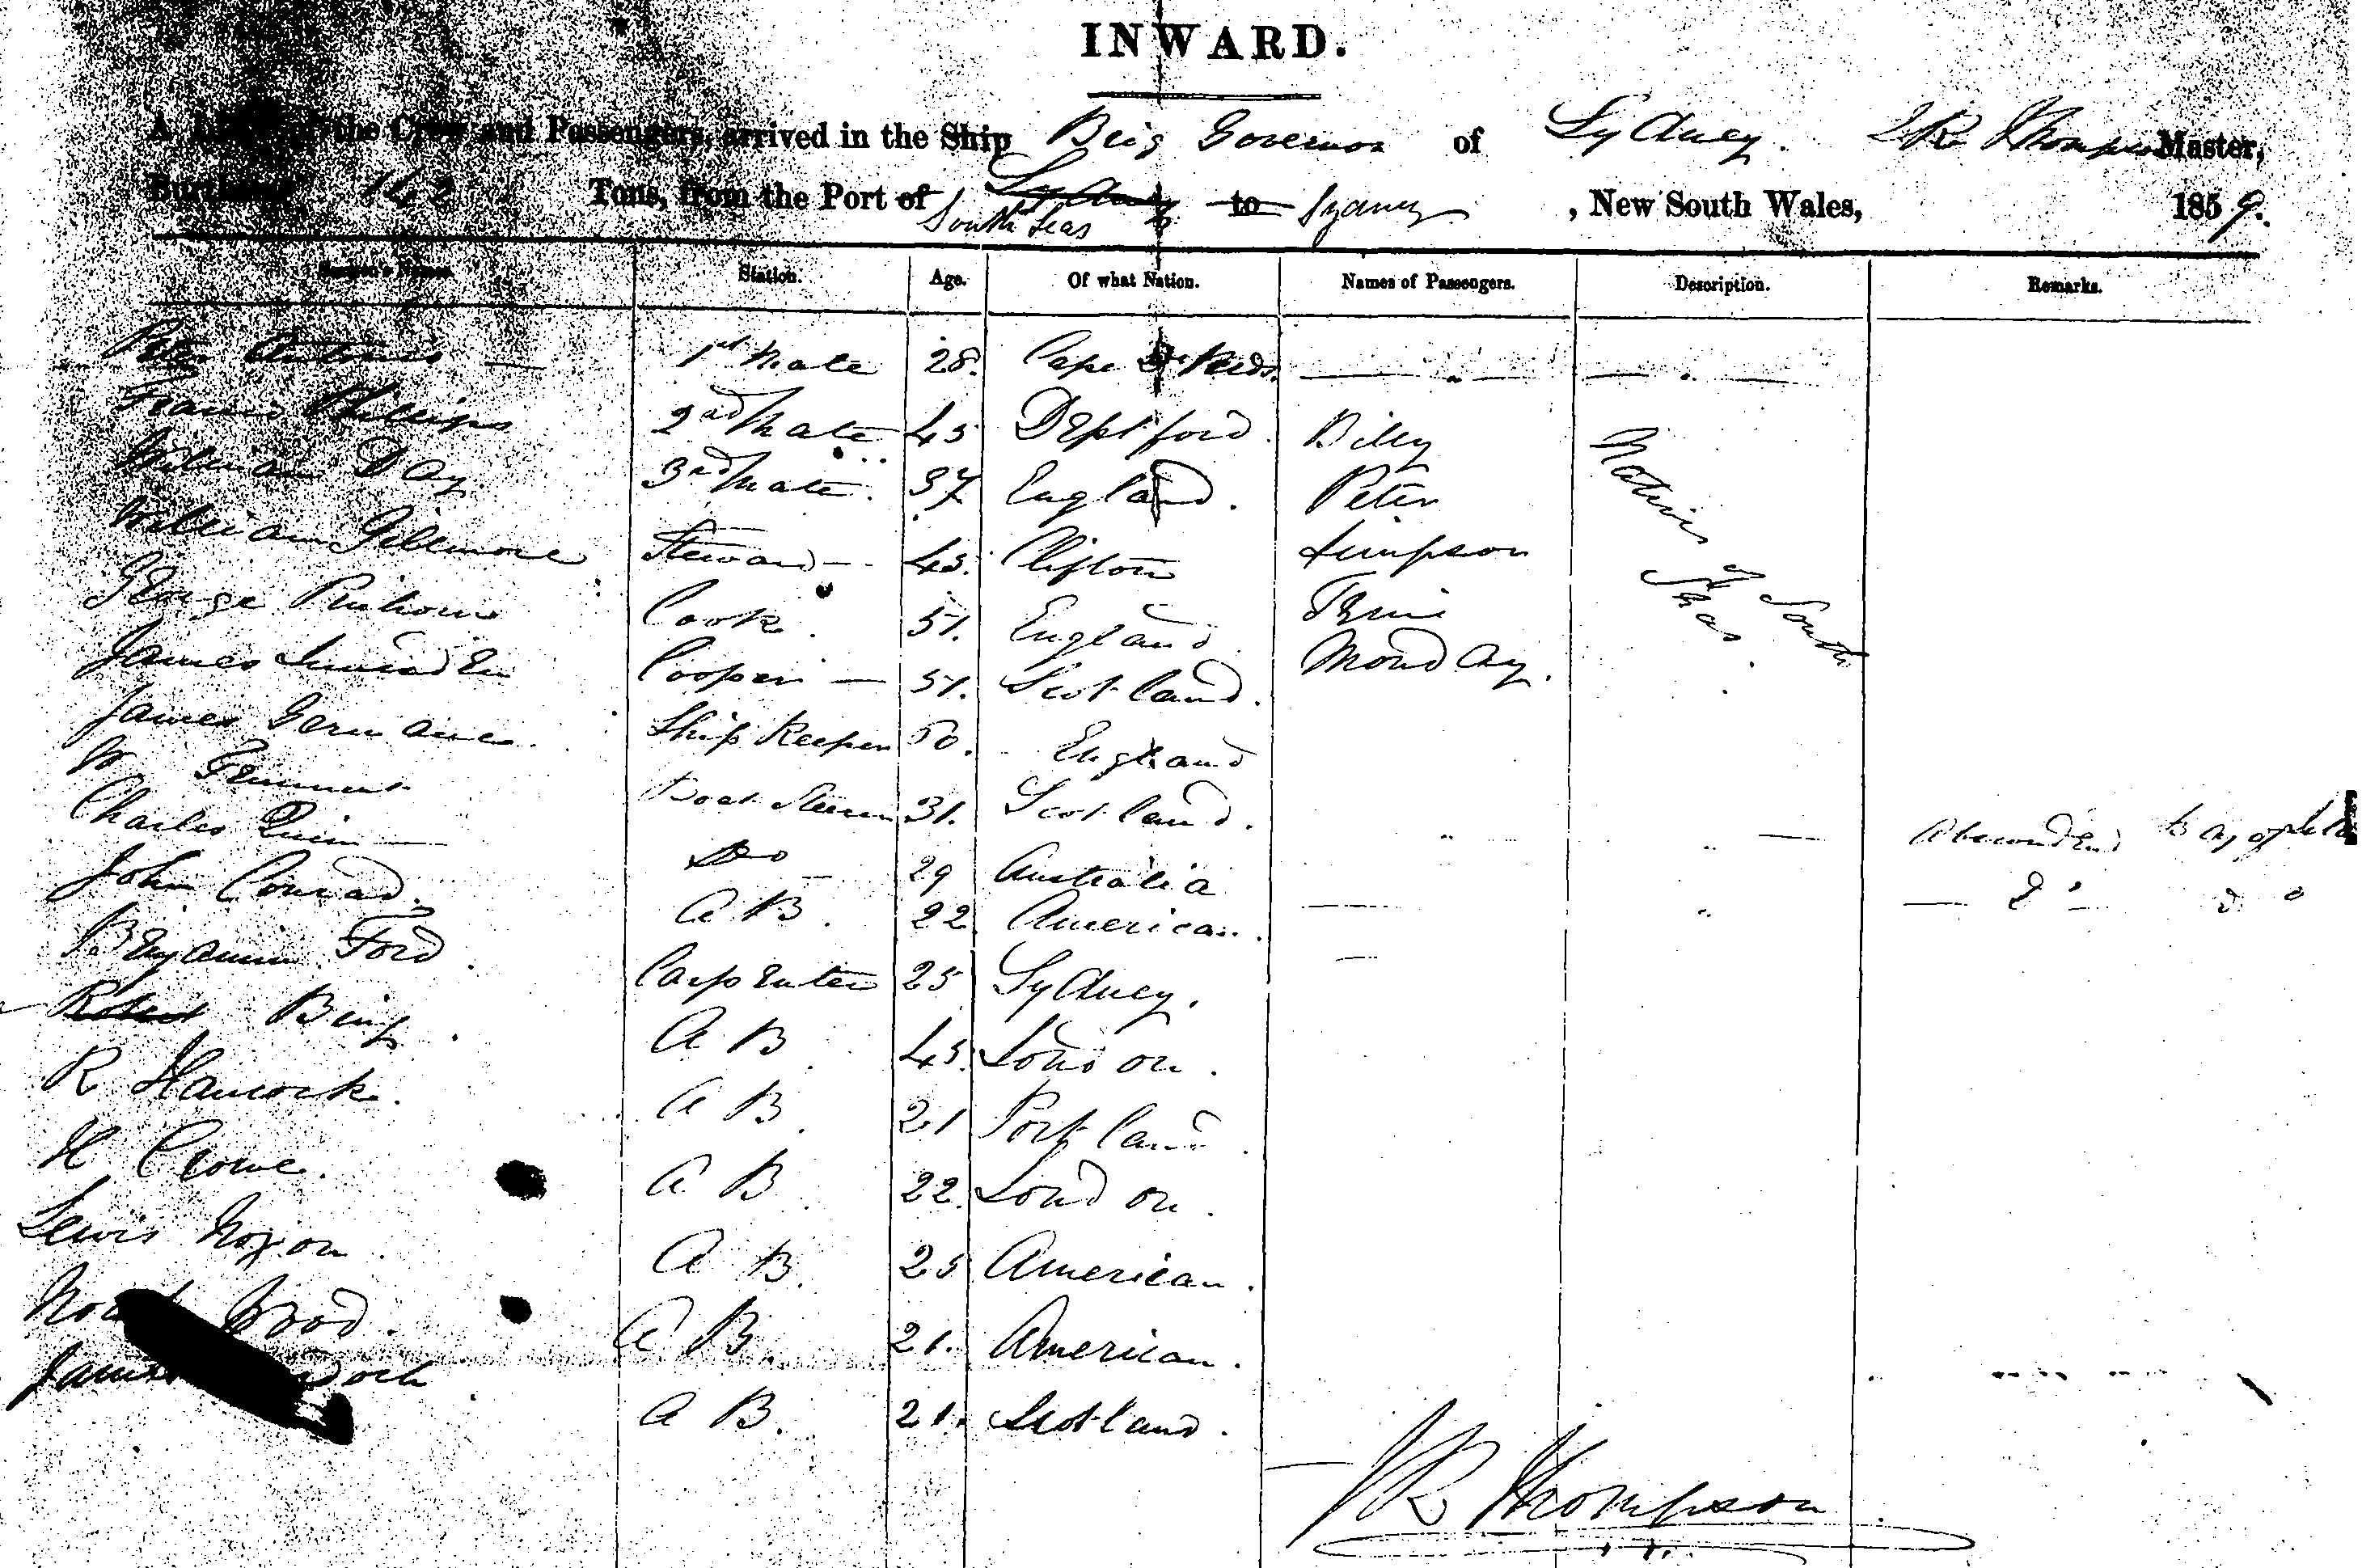 INWARD.
A List of the Crew and Passengers, arrived in the Ship Brig Governor of Sydney. Thompson Master,
Burthen 142 Tons, from the Port of Sydney to Sydney, New South Wales, 1859.
South Seas
Seamen's Names. Station. Age. Of what Nation. Names of Passengers. Description. Remarks.
Peter 1st Mate 28. Cape De Verds.
Francis Phillips 2nd Mate 45 Deptford. Billy Natives of South Seas.
William Day 3rd Mate. 37 England. Peter
William Gillmore Steward 43. Clifton Simpson
George Cook. 51. England.
James Cooper 51. Scotland. Monday.
James Ship Keeper 50. England
W Boat Steerer 31. Scotland.
Charles Quin Do 29 Australia Absconded Bay of
John Conrad. A B. 22 American. Do do
Benjamin Ford. Carpenter 25 Sydney.
Robert A B 45. London.
R Hancock. A B. 21 Portland.
H Crowe. A B. 22. London.
Lewis Noxon. A B. 25 American.
Wood. A B. 21. American.
James A B. 21. Scotland.
Thompson